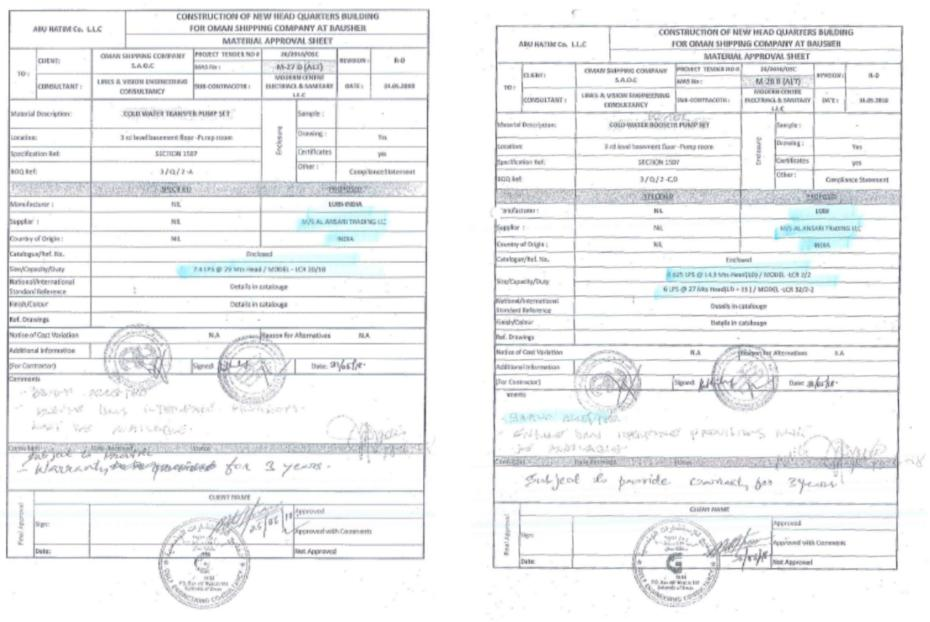 ABU HATIM Co. L.L.C
CONSTRUCTION OF NEW HEAD QUARTERS BUILDING
FOR OMAN SHIPPING COMPANY AT BAUSHER
MATERIAL APPROVAL SHEET
TO :
CLIENT:
OMAN SHIPPING COMPANY S.A.O.C
PROJECT TENDER NO #
26/2016/OSC
MAS No :
M-27 B (ALT)
REVISION :
R-0
CONSULTANT :
LINKS & VISION ENGINEERING CONSULTANCY
SUB-CONTRACOTR :
MODERN CENTRE ELECTRICAL & SANITARY L.L.C
DATE :
31.05.2018
Material Description:
COLD WATER TRANSFER PUMP SET
Enclosure
Sample :
-
Location:
3 rd level basement floor -Pump room
Drawing :
Yes
Specification Ref:
SECTION 1507
Certificates
yes
BOQ Ref:
3 / Q / 2 -A
Other :
Compliance Statement
SPECIFIED
PROPOSED
Manufacturer :
NIL
LUBI-INDIA
Supplier :
NIL
M/S AL ANSARI TRADING LLC
Country of Origin :
NIL
INDIA
Catalogue/Ref. No.
Enclosed
Size/Capacity/Duty
National/International Standard Reference
Details in catalouge
Finish/Colour
Details in catalouge
Ref. Drawings
-
Notice of Cost Variation
N.A
Reason for Alternatives
N.A
Additional Information
(For Contractor)
Signed:
Date: 31/05/18
Comments
- Warranty for 3 years.
CLIENT NAME
Final Approval
Sign:
Approved
Approved with Comments
Date:
Not Approved
GULF ENGINEERING CONSULTANCY
ABU HATIM Co. L.L.C
CONSTRUCTION OF NEW HEAD QUARTERS BUILDING
FOR OMAN SHIPPING COMPANY AT BAUSHER
MATERIAL APPROVAL SHEET
TO :
CLIENT:
OMAN SHIPPING COMPANY S.A.O.C
PROJECT TENDER NO #
26/2016/OSC
MAS No :
M-28 B (ALT)
REVISION :
R-0
CONSULTANT :
LINKS & VISION ENGINEERING CONSULTANCY
SUB-CONTRACOTR :
MODERN CENTRE ELECTRICAL & SANITARY L.L.C
DATE :
31.05.2018
Material Description:
COLD WATER BOOSETR PUMP SET
Enclosure
Sample :
-
Location:
3 rd level basement floor -Pump room
Drawing :
Yes
Specification Ref:
SECTION 1507
Certificates
yes
BOQ Ref:
3 / Q / 2 -C,D
Other :
Compliance Statement
SPECIFIED
PROPOSED
Manufacturer :
NIL
LUBI
Supplier :
NIL
M/S AL ANSARI TRADING LLC
Country of Origin :
NIL
INDIA
Catalogue/Ref. No.
Enclosed
Size/Capacity/Duty
National/International Standard Reference
Details in catalouge
Finish/Colour
Details in catalouge
Ref. Drawings
-
Notice of Cost Variation
N.A
Reason for Alternatives
N.A
Additional Information
(For Contractor)
Signed:
Date: 31/05/18
Subject to provide warranty for 3 years
CLIENT NAME
Final Approval
Sign:
Approved
Approved with Comments
Date:
Not Approved
GULF ENGINEERING CONSULTANCY